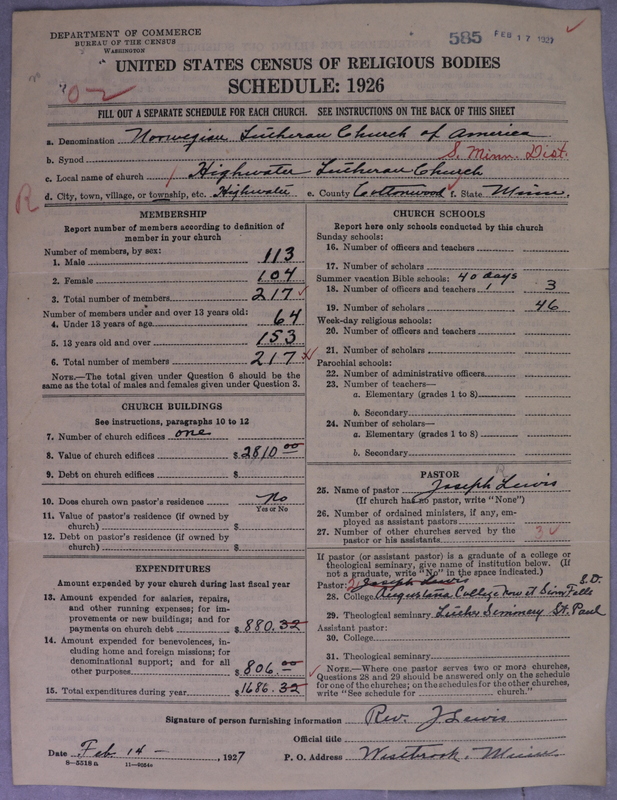 DEPARTMENT OF COMMERCE
BUREAU OF THE CENSUS
WASHINGTON
585 FEB 17 1927
UNITED STATES CENSUS OF RELIGIOUS BODIES
SCHEDULE: 1926
FILL OUT A SEPARATE SCHEDULE FOR EACH CHURCH. SEE INSTRUCTIONS ON THE BACK OF THIS SHEET
a. Denomination Norwegian Lutheran Church of America
b. Synod S. Minn. Dist.
c. Local name of church Highwater Lutheran Church
d. City, town, village, or township, etc. Highwater e. County Cottonwood f. State Minn.
R
MEMBERSHIP
Report number of members according to definition of
member in your church
Number of members, by sex:
1. Male 113
2. Female 104
3. Total number of members 217
Number of members under and over 13 years old:
4. Under 13 years of age 64
5. 13 years old and over 153
6. Total number of members 217
NOTE.—The total given under Question 6 should be
same as the total of males and females given under Question 3.
CHURCH BUILDINGS
See instructions, paragraphs 10 to 12
7. Number of church edifices one
8. Value of church edifices $ 2810 00
9. Debt on church edifices $
10. Does church own pastor's residence No
Yes or No
11. Value of pastor's residence (if owned by
church) $
12. Debt on pastor's residence (if owned by
church) $
EXPENDITURES
Amount expended by your church during last fiscal year
13. Amount expended for salaries, repairs,
and other running expenses; for im-
provements or new buildings; and for
payments on church debt $ 880.32
14. Amount expended for benevolences, in-
cluding home and foreign missions; for
denominational support; and for all
other purposes $ 806.00
15. Total expenditures during year $ 1686.32
CHURCH SCHOOLS
Report here only schools conducted by this church
Sunday schools:
16. Number of officers and teachers
17. Number of scholars
Summer vacation Bible schools: 40 days
18. Number of officers and teachers 1 3
19. Number of scholars 46
Week-day religious schools:
20. Number of officers and teachers
21. Number of scholars
Parochial schools:
22. Number of administrative officers
23. Number of teachers—
a. Elementary (grades 1 to 8)
b. Secondary
24. Number of scholars—
a. Elementary (grades 1 to 8)
b. Secondary
PASTOR
25. Name of pastor Joseph Lewis
(If church has no pastor, write "None")
26. Number of ordained ministers, if any, em-
ployed as assistant pastors
27. Number of other churches served by the
pastor or his assistants 3
If pastor (or assistant pastor) is a graduate of a college or
theological seminary, give name of institution below. (If
not a graduate, write "No" in the space indicated.)
Pastor: Joseph Lewis S.D.
28. College Augustana College now at Sioux Falls
29. Theological seminary Luther Seminary St. Paul
Assistant pastor:
30. College
31. Theological seminary
NOTE.—Where one pastor serves two or more churches,
Questions 28 and 29 should be answered only on the schedule
for one of the churches; on the schedules for the other churches,
write "See schedule for church."
Signature of person furnishing information Rev. J Lewis
Official title
Date Feb. 14 - , 1927 P. O. Address Westbrook, Minn.
8—5518a 11—9054